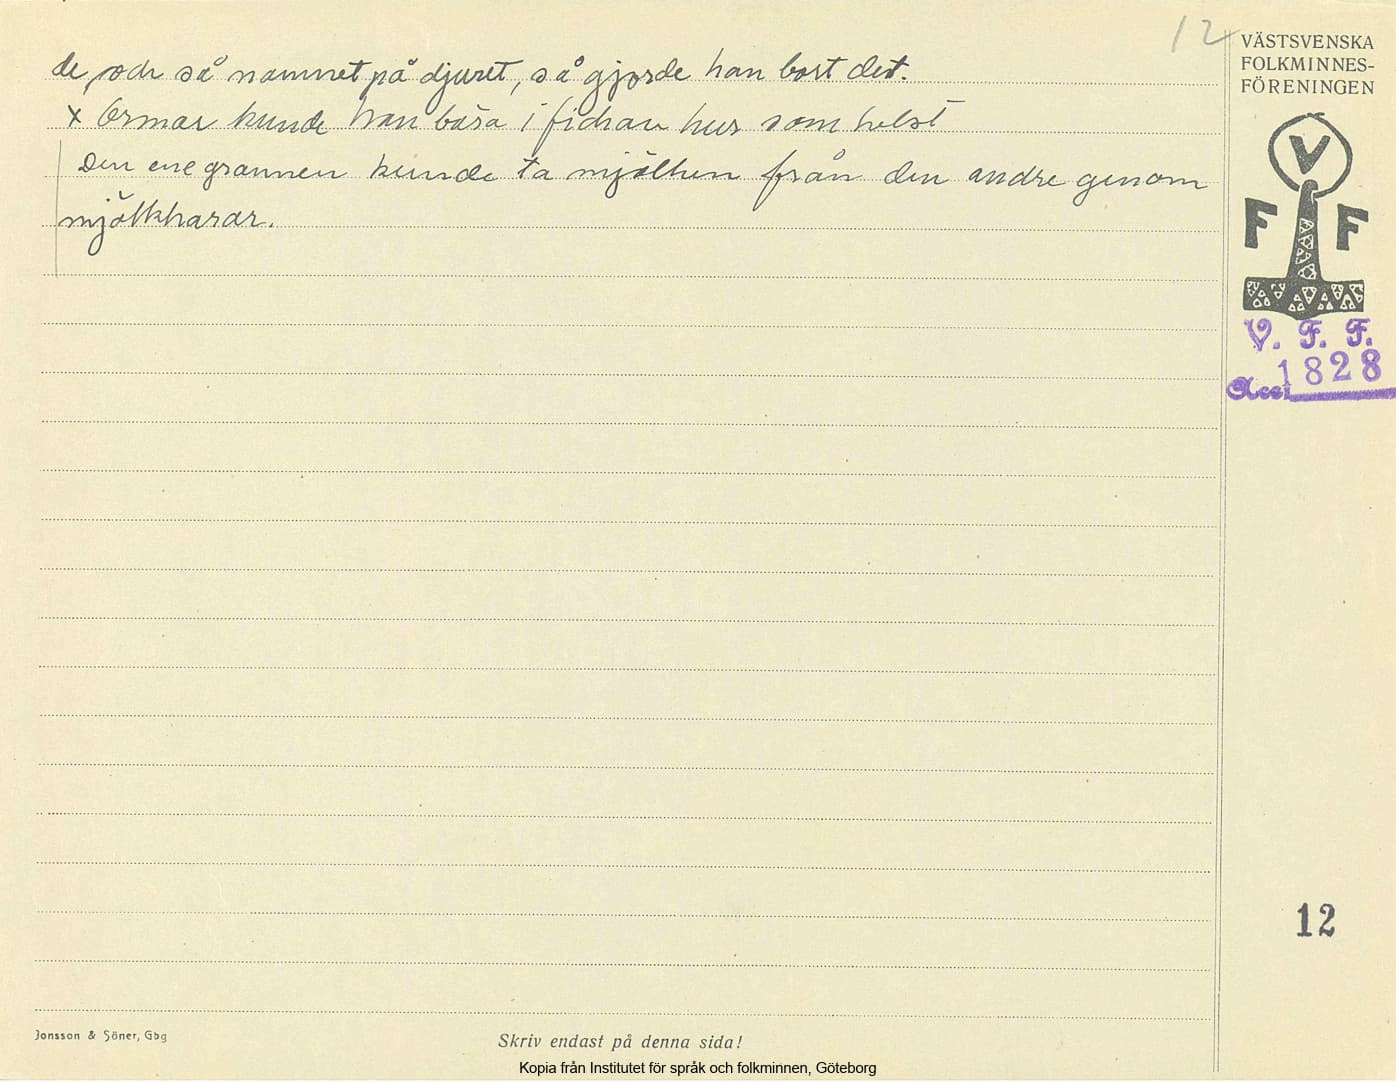 12
VÄSTSVENSKA
FOLKMINNES-
FÖRENINGEN
de, och så namnet på djuret, så gjorde han bort det.
x Ormar kunde han bära i fickan hur som helst
Den ene grannen kunde ta mjölken från den andre genom
mjölkharar.
V
F F
V. F. F.
Acc. 1828
12
Jonsson & Söner, Gbg
Skriv endast på denna sida!
Kopia från Institutet för språk och folkminnen, Göteborg